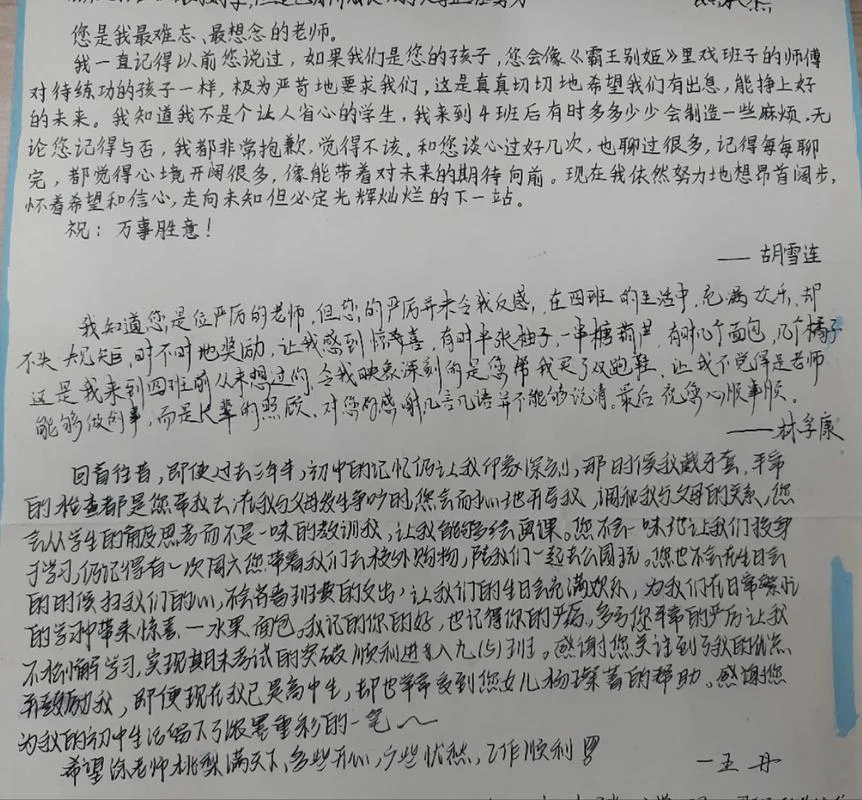 您是我最难忘、最想念的老师。
我一直记得以前您说过，如果我们是您的孩子，您会像《霸王别姬》里戏班子的师傅
对待练功的孩子一样，极为严苛地要求我们，这是真真切切地希望我们有出息，能挣上好
的未来。我知道我不是个让人省心的学生，我来到4班后有时多多少少会制造一些麻烦，无
论您记得与否，我都非常抱歉，觉得不该。和您谈心过好几次，也聊过很多，记得每每聊
完，都觉得心境开阔很多，像能带着对未来的期待向前。现在我依然努力地想昂首阔步，
怀着希望和信心，走向未知但必定光辉灿烂的下一站。
祝：万事胜意！
——胡雪连
我知道您是位严厉的老师，但您的严厉并未令我反感，在四班的生活中，充满欢乐，却
不失规矩，时不时地奖励，让我感到惊喜，有时半张柚子，一串糖葫芦，有时几个面包，几个橘子
这是我来到四班前从未想过的，令我映象深刻的是您帮我买了双跑鞋，让我不觉得是老师
能够做的事，而是长辈的照顾，对您的感谢几言几语并不能够说清。最后祝您心顺事顺。
——林孚康
回首往昔，即使过去三年半，初中的记忆仍让我印象深刻，那时侯我戴牙套，平常
的检查都是您带我去，在我与父母发生争吵时，您会而地开导我，调和我与父母的关系，您
会从学生的角度思考而不是一味的教训我，让我能够去画课。您不会一味地让我们投身
于学习，仍记得有一次周六您带着我们去校外购物，陪我们一起去公园玩。您也不会在生日会
的时侯扫我们的心，不会吝啬班费的支出，让我们的生日会充满欢乐，为我们在日常繁忙
的学习中带来惊喜——水果、面包。我记的你的好，也记得你的严厉，多亏您平常的严厉让我
不松懈学习，实现期末考试的突破，顺利进入九（5）班。感谢您关注到了我的优点
并鼓励我，即便现在我已是高中生，却也常常受到您女儿的帮助。感谢您
为我的初中生活留下了浓墨重彩的一笔～
希望徐老师桃梨满天下，多些开心，少些忧愁，工作顺利
—王丹